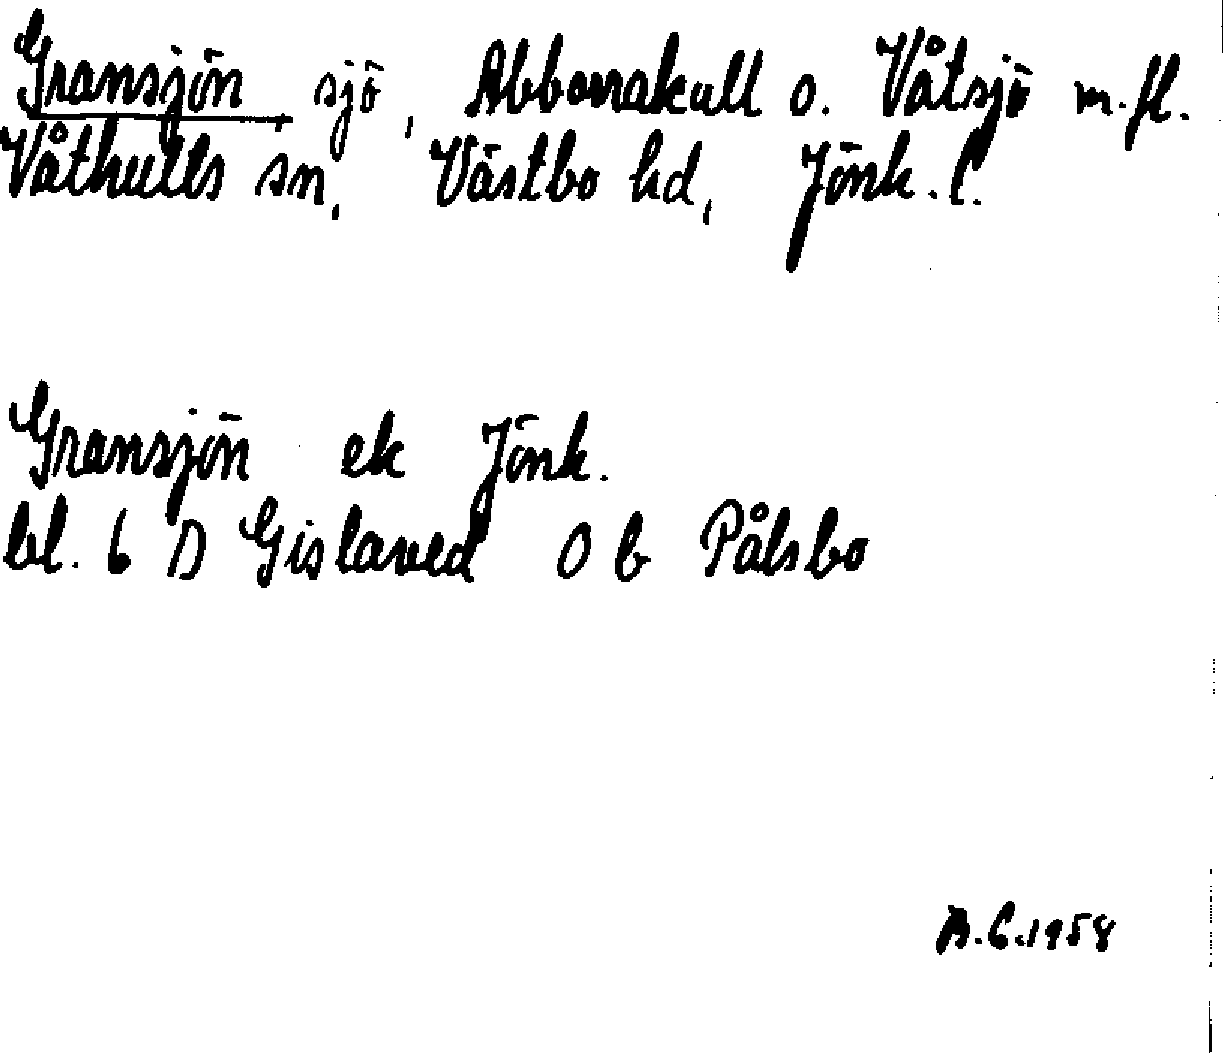 Gransjön sjö, Abborrakull o. Våtsjö m.fl.
Våthults sn, Västbo hd, Jönk. l.
Gransjön ek Jönk.
bl. 6 D Gislaved 0 b Pålsbo
B.C.1958